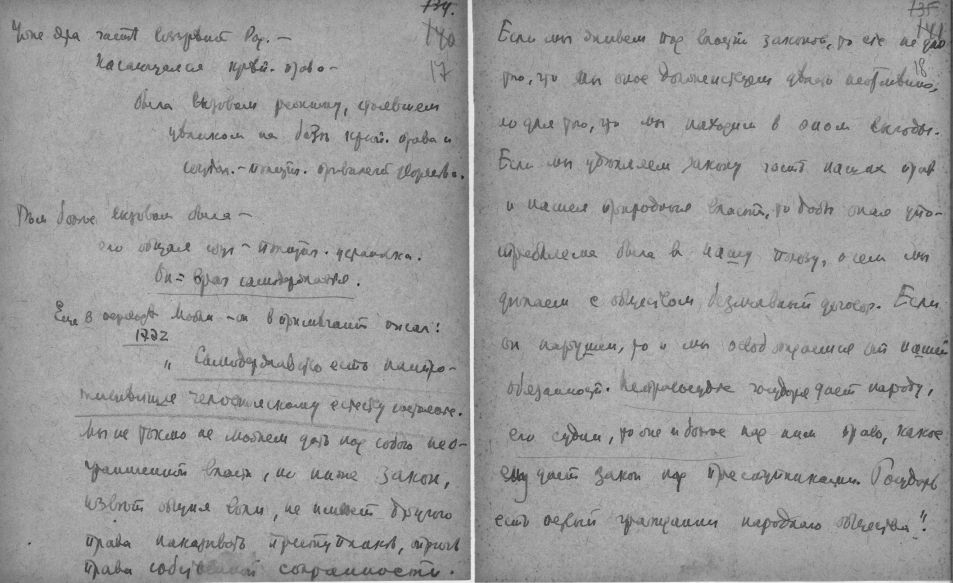 134.
140
17
Уже два часть воззрений Рад. —
касающаяся крѣп. права —
была вызовом режиму, стоявшем
целиком на базѣ крѣп. права и
полит. привилегий дворянства.
Тѣм болѣе вызовом была —
его общая полит. установка.
Он = враг самодержавия.
Еще в переводѣ Мабли — он в примѣчании писал:
1772
„Самодержавство есть наипро-
тивнѣйшее человѣческому естеству состояние.
Мы не токмо не можем дать над собою нео-
граниченной власти, но ниже закон,
извѣт общия воли, не имѣет другого
права наказывать преступников, опричь
права собственной сохранности.
135.
141
18
Если мы живем под властию законов, то сие не для
того, что мы оное долженствуем делать неотменно,
но для того, что мы находим в оном выгоды.
Если мы уделяем закону часть наших прав
и нашея природныя власти, то дабы оная упо-
требляема была в нашу пользу, о сем мы
делаем с обществом безмолвный договор. Если
он нарушен, то и мы освобождаемся от нашей
обязанности. Неправосудие государя дает народу,
его судии, то же и более над ним право, какое
ему дает закон над преступниками. Государь
есть первый гражданин народного общества“!